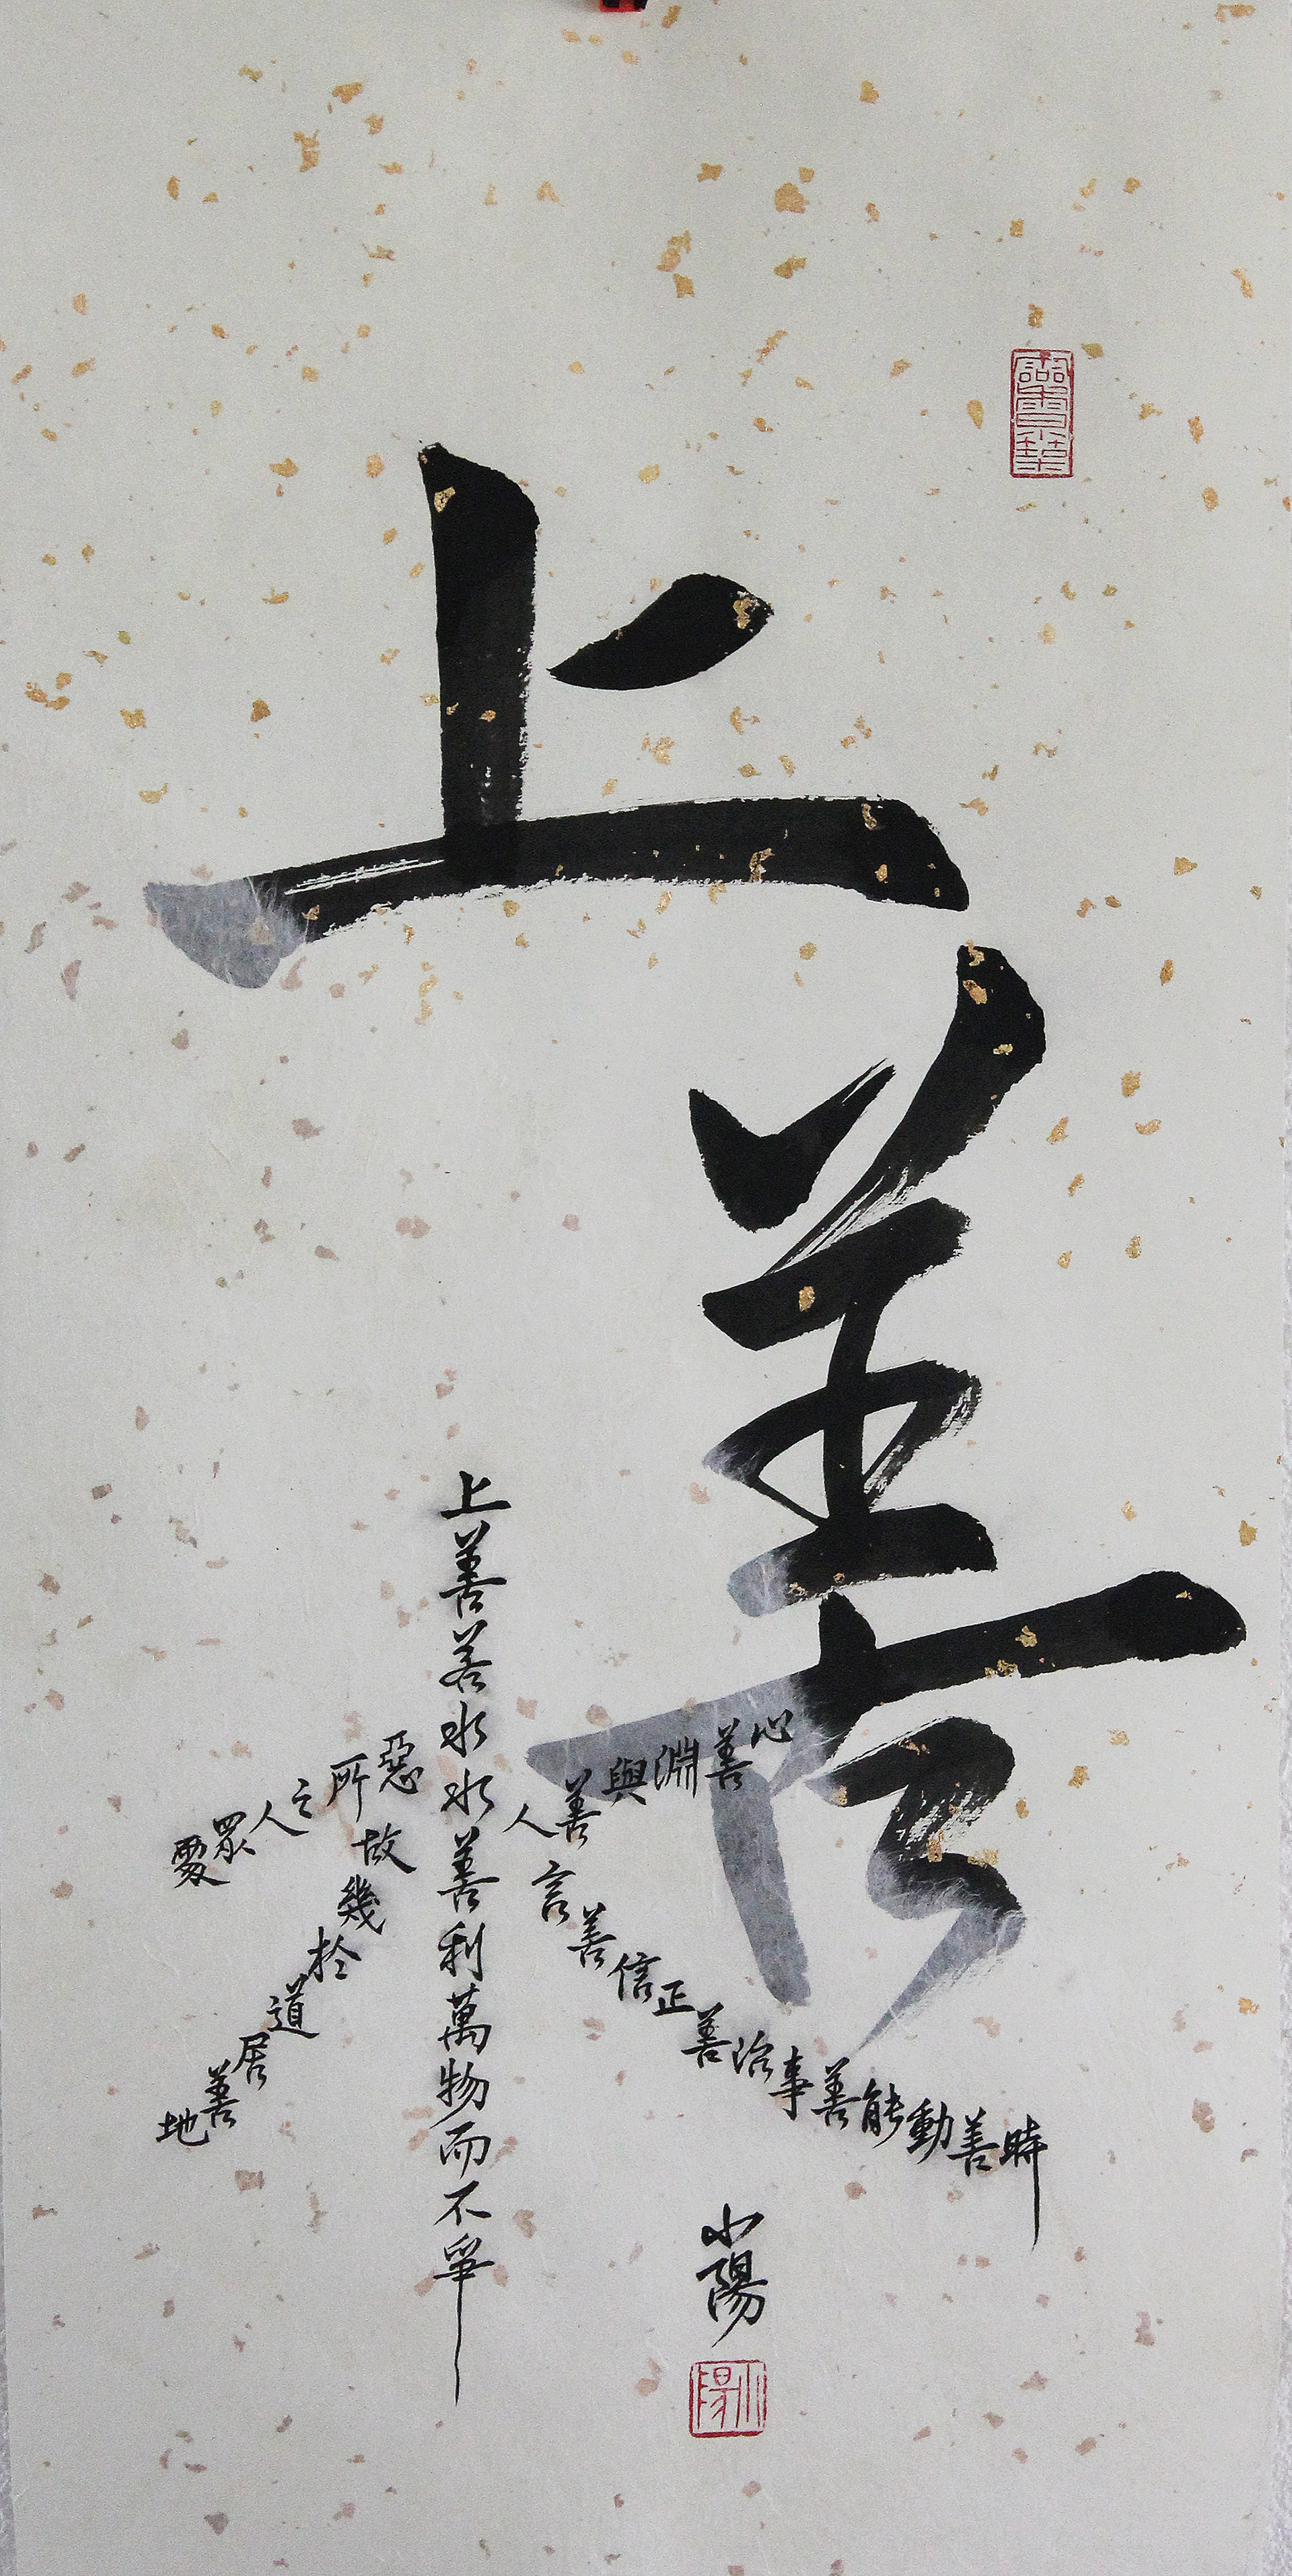 上善
上善若水水善利萬物而不爭
處眾人之所惡
故幾於道居善地
心善淵與善人
言善信正善治事善能動善時
小陽
小陽